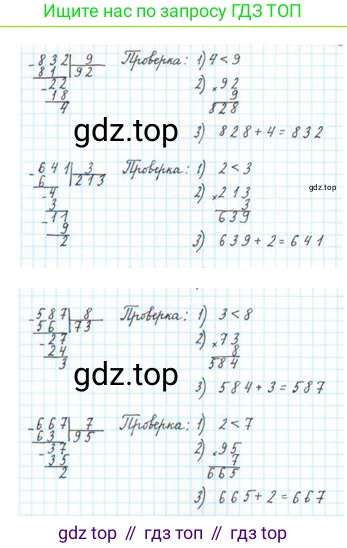 Ищите нас по запросу ГДЗ ТОП
-832 | 9
81 | 92
-22
18
4
Проверка: 1) 4 < 9
2) ×92
9
828
3) 828 + 4 = 832
gdz.top
-641 | 3
6 | 213
-4
3
-11
9
2
Проверка: 1) 2 < 3
2) ×213
3
639
3) 639 + 2 = 641
-587 | 8
56 | 73
-27
24
3
Проверка: 1) 3 < 8
2) ×73
8
584
3) 584 + 3 = 587
gdz.top
-667 | 7
63 | 95
-37
35
2
Проверка: 1) 2 < 7
2) ×95
7
665
3) 665 + 2 = 667
gdz.top // гдз топ // gdz.top